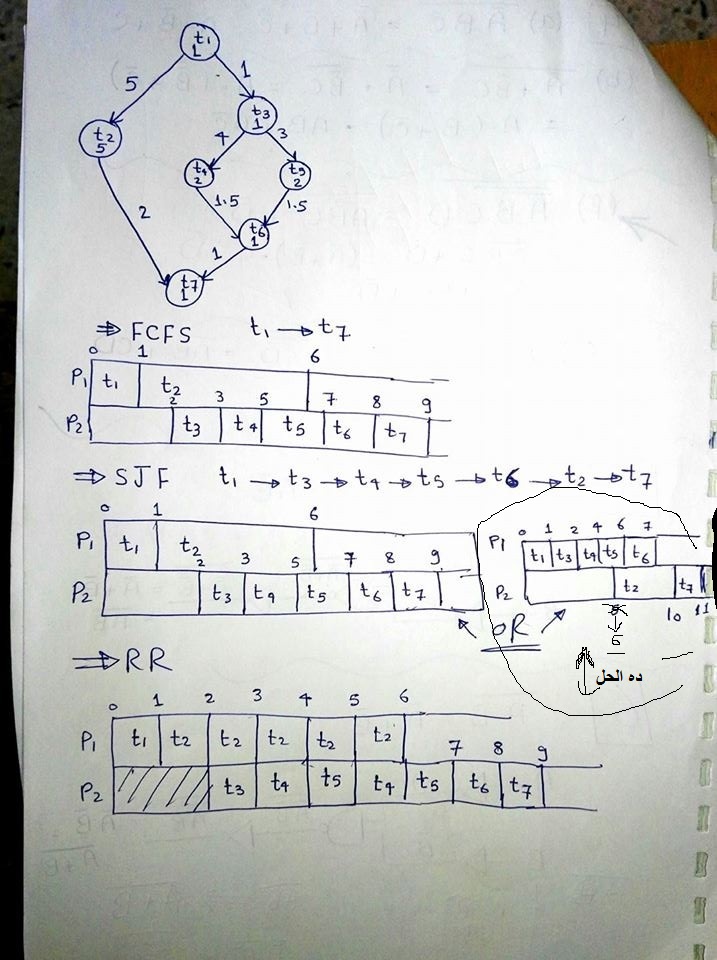 t1
1
5
1
t2
5
t3
1
4
3
t4
2
t5
2
2
1.5
1.5
t6
1
1
t7
1
⇒ FCFS t1 → t7
0 1 6
P1 t1 t2
2 3 5 7 8 9
P2 t3 t4 t5 t6 t7
⇒ SJF t1 → t3 → t4 → t5 → t6 → t2 → t7
0 1 6
P1 t1 t2
2 3 5 7 8 9
P2 t3 t4 t5 t6 t7
OR
0 1 2 4 6 7
P1 t1 t3 t4 t5 t6
P2 t2 t7
10 11
6
ده الحل
⇒ RR
0 1 2 3 4 5 6
P1 t1 t2 t2 t2 t2 t2
7 8 9
P2 t3 t4 t5 t4 t5 t6 t7